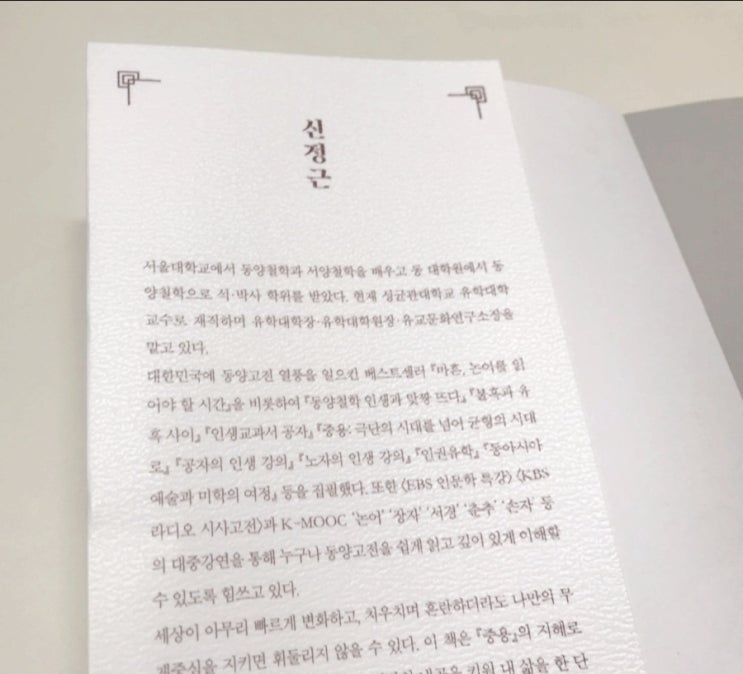 신정근
서울대학교에서 동양철학과 서양철학을 배우고 동 대학원에서 동
양철학으로 석·박사 학위를 받았다. 현재 성균관대학교 유학대학
교수로 재직하며 유학대학장·유학대학원장·유교문화연구소장을
맡고 있다.
대한민국에 동양고전 열풍을 일으킨 베스트셀러 『마흔, 논어를 읽
어야 할 시간』을 비롯하여 『동양철학 인생과 맞짱 뜨다』, 『불혹과 유
혹 사이』, 『인생교과서 공자』, 『중용: 극단의 시대를 넘어 균형의 시대
로』, 『공자의 인생 강의』, 『노자의 인생 강의』, 『인권유학』, 『동아시아
예술과 미학의 여정』 등을 집필했다. 또한 〈EBS 인문학 특강〉 〈KBS
라디오 시사고전〉과 K-MOOC '논어' '장자' '서경' '춘추' '손자' 등
의 대중강연을 통해 누구나 동양고전을 쉽게 읽고 깊이 있게 이해할
수 있도록 힘쓰고 있다.
세상이 아무리 빠르게 변화하고, 치우치며 혼란하더라도 나만의 무
게중심을 지키면 휘둘리지 않을 수 있다. 이 책은 『중용』의 지혜로
키워 내 삶을 한 단